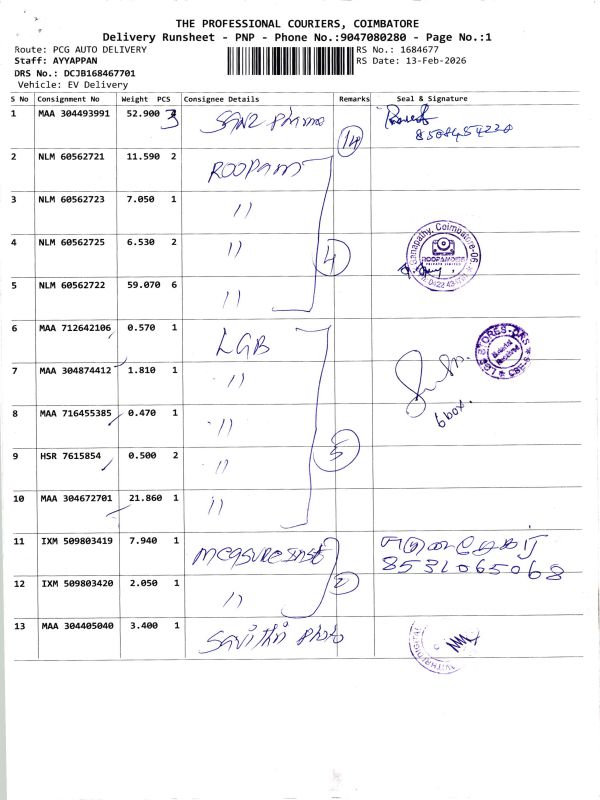 THE PROFESSIONAL COURIERS, COIMBATORE
Delivery Runsheet - PNP - Phone No.:9047080280 - Page No.:1
Route: PCG AUTO DELIVERY RS No.: 1684677
Staff: AYYAPPAN RS Date: 13-Feb-2026
DRS No.: DCJB168467701
Vehicle: EV Delivery
S No Consignment No Weight PCS Consignee Details Remarks Seal & Signature
1 MAA 304493991 52.900 3 8508454220
14
2 NLM 60562721 11.590 2 ROOPAM
3 NLM 60562723 7.050 1 11
4 NLM 60562725 6.530 2 11 4 Ganapathy, Coimbatore-06
5 NLM 60562722 59.070 6 11
6 MAA 712642106 0.570 1 LGB
7 MAA 304874412 1.810 1 11
8 MAA 716455385 0.470 1 11 6 box.
9 HSR 7615854 0.500 2 11 5
10 MAA 304672701 21.860 1 11
11 IXM 509803419 7.940 1 measure inst
8531065068
12 IXM 509803420 2.050 1 11 2
13 MAA 304405040 3.400 1 Savithri Photo